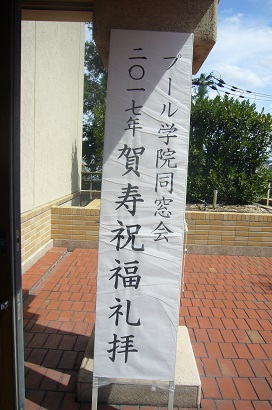 プール学院同窓会
二〇一七年 賀寿祝福礼拝